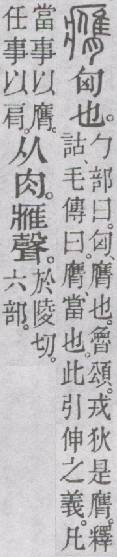 膺 匈也。勹部曰。匈、膺也。魯頌。戎狄是膺。釋
詁、毛傳曰。膺、當也。此引伸之義。凡
當事以膺。
任事以肩。从肉。𤸰聲。於陵切。
六部。